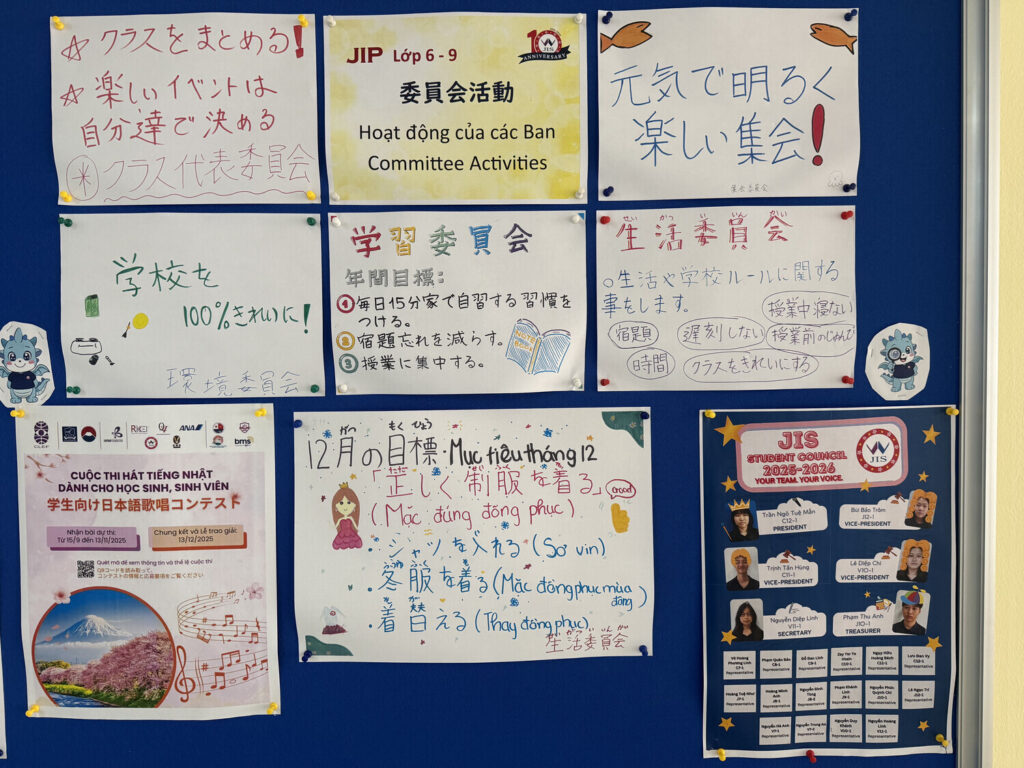 ☆ クラスをまとめる!
☆ 楽しいイベントは
自分達で決める
※ クラス代表委員会
JIP Lớp 6 - 9
10
JIS
ANNIVERSARY
委員会活動
Hoạt động của các Ban
Committee Activities
元気で明るく
楽しい集会!
集会委員会
学校を
100%きれいに!
環境委員会
学習委員会
年間目標:
① 毎日15分家で自習する習慣を
つける。
② 宿題忘れを減らす。
③ 授業に集中する。
NOTE BOOK
せい かつ い いん かい
生活委員会
○生活や学校ルールに関する
事をします。
授業中寝ない
宿題
遅刻しない
授業前のじゅんび
時間
クラスをきれいにする
ANA
bms
CUỘC THI HÁT TIẾNG NHẬT
DÀNH CHO HỌC SINH, SINH VIÊN
学生向け日本語歌唱コンテスト
Nhận bài dự thi:
Từ 15/9 đến 13/11/2025
Chung kết và Lễ trao giải:
13/12/2025
Quét mã để xem thông tin và thể lệ cuộc thi
QRコードを読み取って、
コンテストの情報と応募要項をご覧ください
がつ もく ひょう
12月の目標・Mục tiêu tháng 12
ただ せい ふく き
「正しく制服を着る」
Good
(Mặc đúng đồng phục)
・シャツを入れる (Sơ vin)
ふゆ ふく き
・冬服を着る (Mặc đồng phục mùa đông)
・着替える (Thay đồng phục)
せい かつ い いん かい
生活委員会
JIS
STUDENT COUNCIL
2025-2026
YOUR TEAM. YOUR VOICE.
JIS
Trần Ngô Tuệ Mẫn
C12-1
PRESIDENT
Bùi Bảo Trâm
J12-1
VICE-PRESIDENT
Trịnh Tấn Hùng
C11-1
VICE-PRESIDENT
Lê Diệp Chi
V10-1
VICE-PRESIDENT
Nguyễn Diệp Linh
V11-1
SECRETARY
Phạm Thu Anh
J10-1
TREASURER